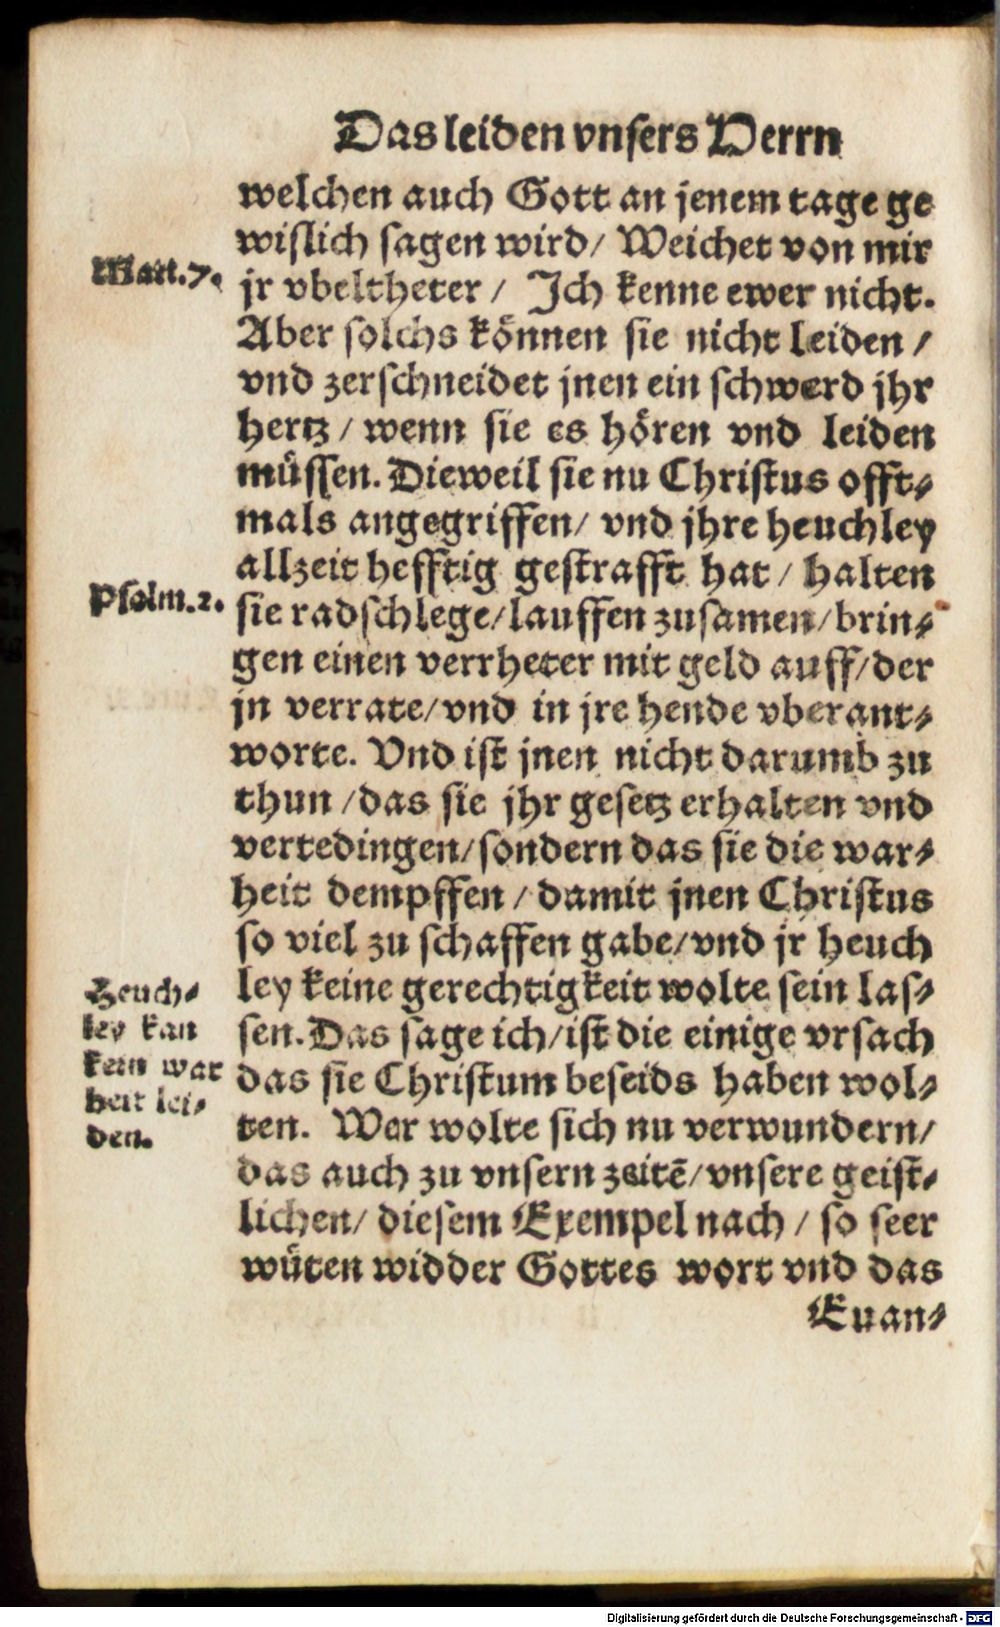 Das leiden vnsers Herrn
welchen auch Gott an jenem tage ge
wislich sagen wird/ Weichet von mir
Matt.7.
jr vbeltheter / Ich kenne ewer nicht.
Aber solchs können sie nicht leiden /
vnd zerschneidet jnen ein schwerd jhr
hertz / wenn sie es hören vnd leiden
müssen. Dieweil sie nu Christus offt-
mals angegriffen/ vnd jhre heuchley
allzeit hefftig gestrafft hat / halten
Psalm.2.
sie radschlege/lauffen zusamen/brin-
gen einen verrheter mit geld auff/der
jn verrate/vnd in jre hende vberant-
worte. Vnd ist jnen nicht darumb zu
thun /das sie jhr gesetz erhalten vnd
vertedingen/sondern das sie die war-
heit dempffen / damit jnen Christus
so viel zu schaffen gabe/vnd jr heuch
ley keine gerechtigkeit wolte sein las-
sen. Das sage ich/ist die einige vrsach
das sie Christum beseids haben wol-
ten. Wer wolte sich nu verwundern/
das auch zu vnsern zeitē/vnsere geist-
lichen/ diesem Exempel nach / so seer
wüten widder Gottes wort vnd das
Euan-
Heuch-
ley kan
kein war
heit lei-
den.
Digitalisierung gefördert durch die Deutsche Forschungsgemeinschaft - DFG